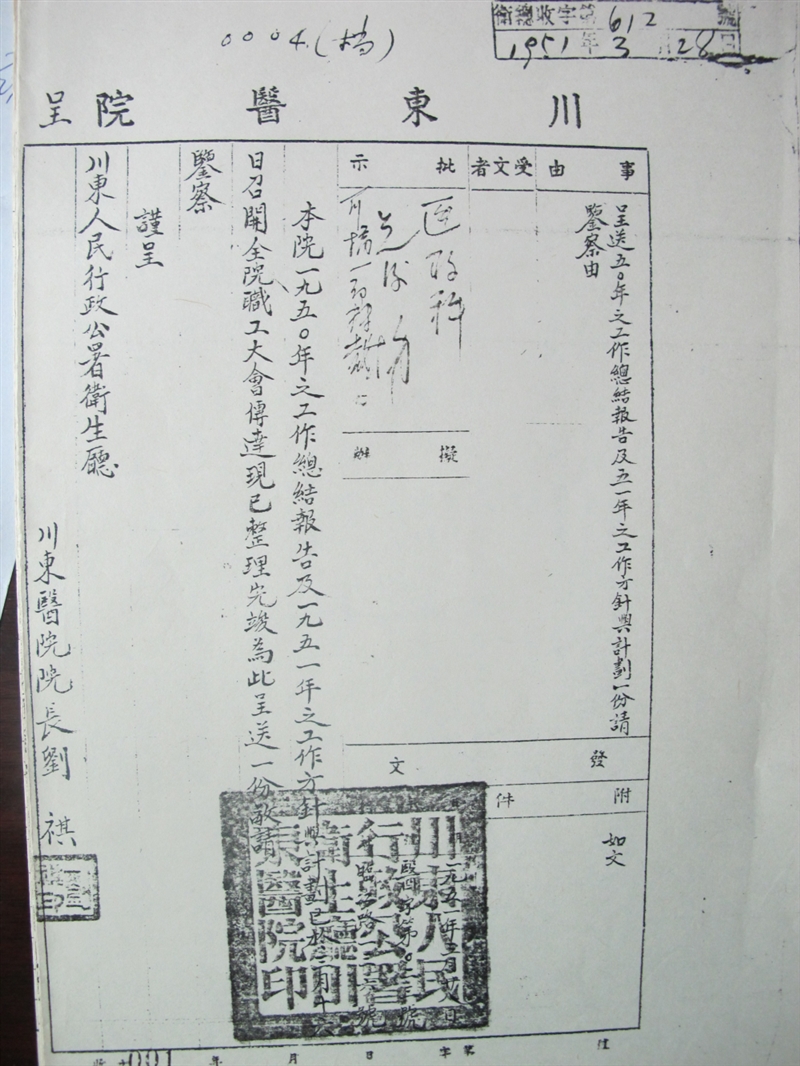 0004.(稿)
衛總收字第612號
1951年3月28日
川東醫院呈
事由
呈送五〇年之工作總結報告及五一年之工作方針與計劃一份請
鑒察由
受文者
批示
擬辦
發文
附件
如文
本院一九五〇年之工作總結報告及一九五一年之工作方針與計劃已於三月十
日召開全院職工大會傳達現已整理完竣為此呈送一份敬請
鑒察
謹呈
川東人民行政公署衛生廳
川東醫院院長劉祺
川東人民
行政公署
衛生廳川
東醫院印
年月日
字第
001